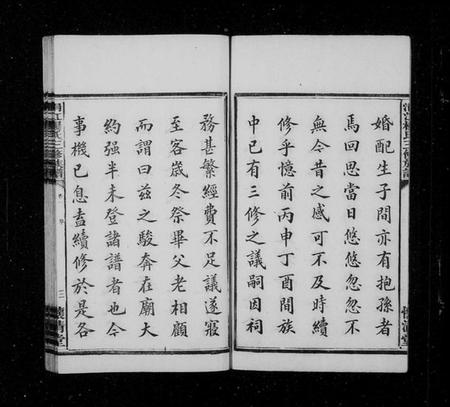 婚配生子問亦有抱孫者
焉回思當日悠悠忽忽不
無今昔之感可不及時續
修乎憶前丙申丁酉間族
中已有三修之議嗣因祠
務甚繁經費不足議遂寢
至客歲冬祭畢父老相顧
而謂曰茲之駿奔在廟大
約強半未登諸譜者也今
事機已息盍續修於是各
三
懷清堂